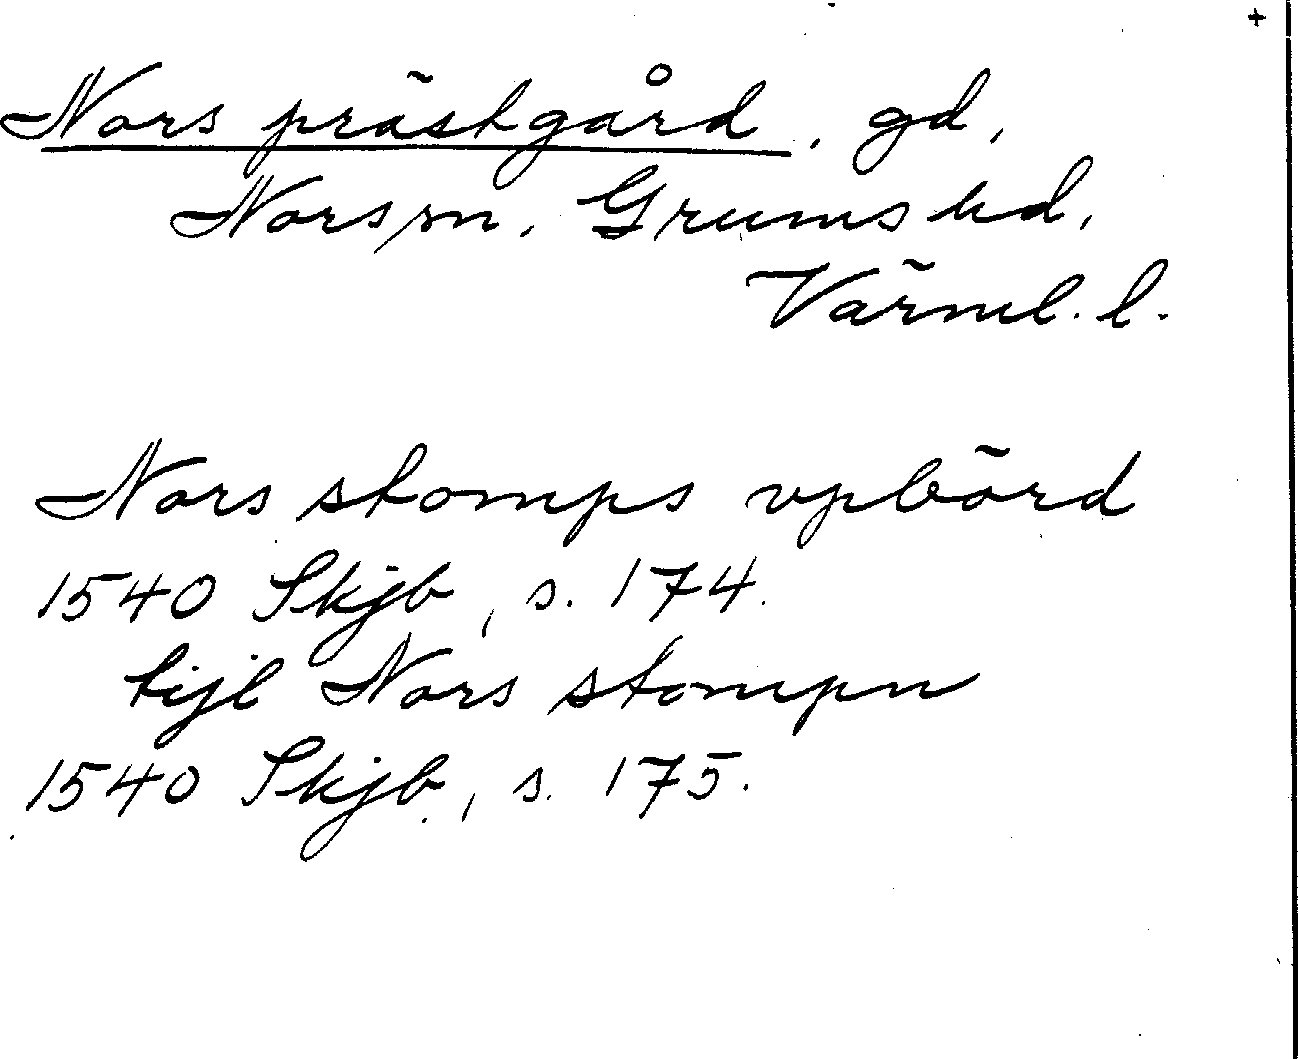 +
Nors prästgård, gd,
Nors sn, Grums hd,
Värml. l.
Nors stomps vpbörd
1540 Skjb, s. 174.
tijl Nors stompn
1540 Skjb, s. 175.